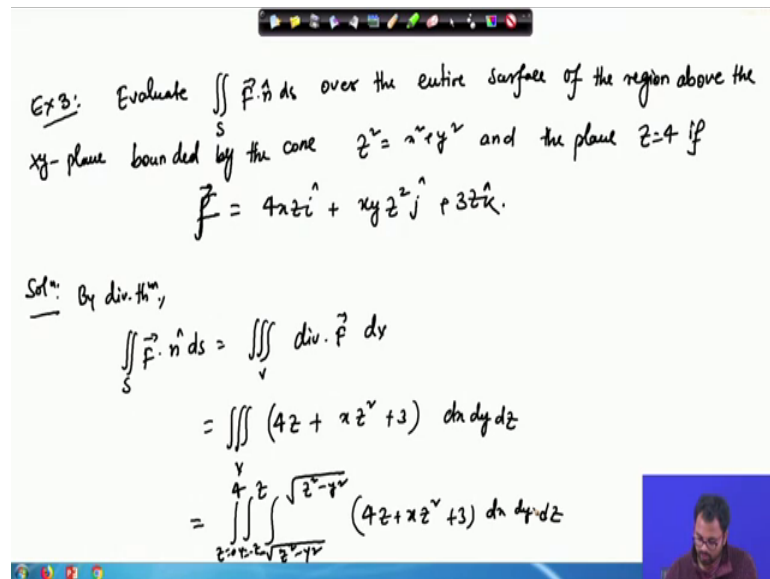 Ex 3: Evaluate ∬_S F⃗·n̂ ds over the entire surface of the region above the
xy-plane bounded by the cone z² = x²+y² and the plane z=4 if
F⃗ = 4xz î + xyz² ĵ + 3z k̂.
Solⁿ: By div. thᵐ.,
∬_S F⃗·n̂ ds = ∭_V div. F⃗ dv
= ∭_V (4z + xz² + 3) dx dy dz
= ∫_{z=0}^{4} ∫_{y=-z}^{z} ∫_{-√(z²-y²)}^{√(z²-y²)} (4z+xz²+3) dx dy dz